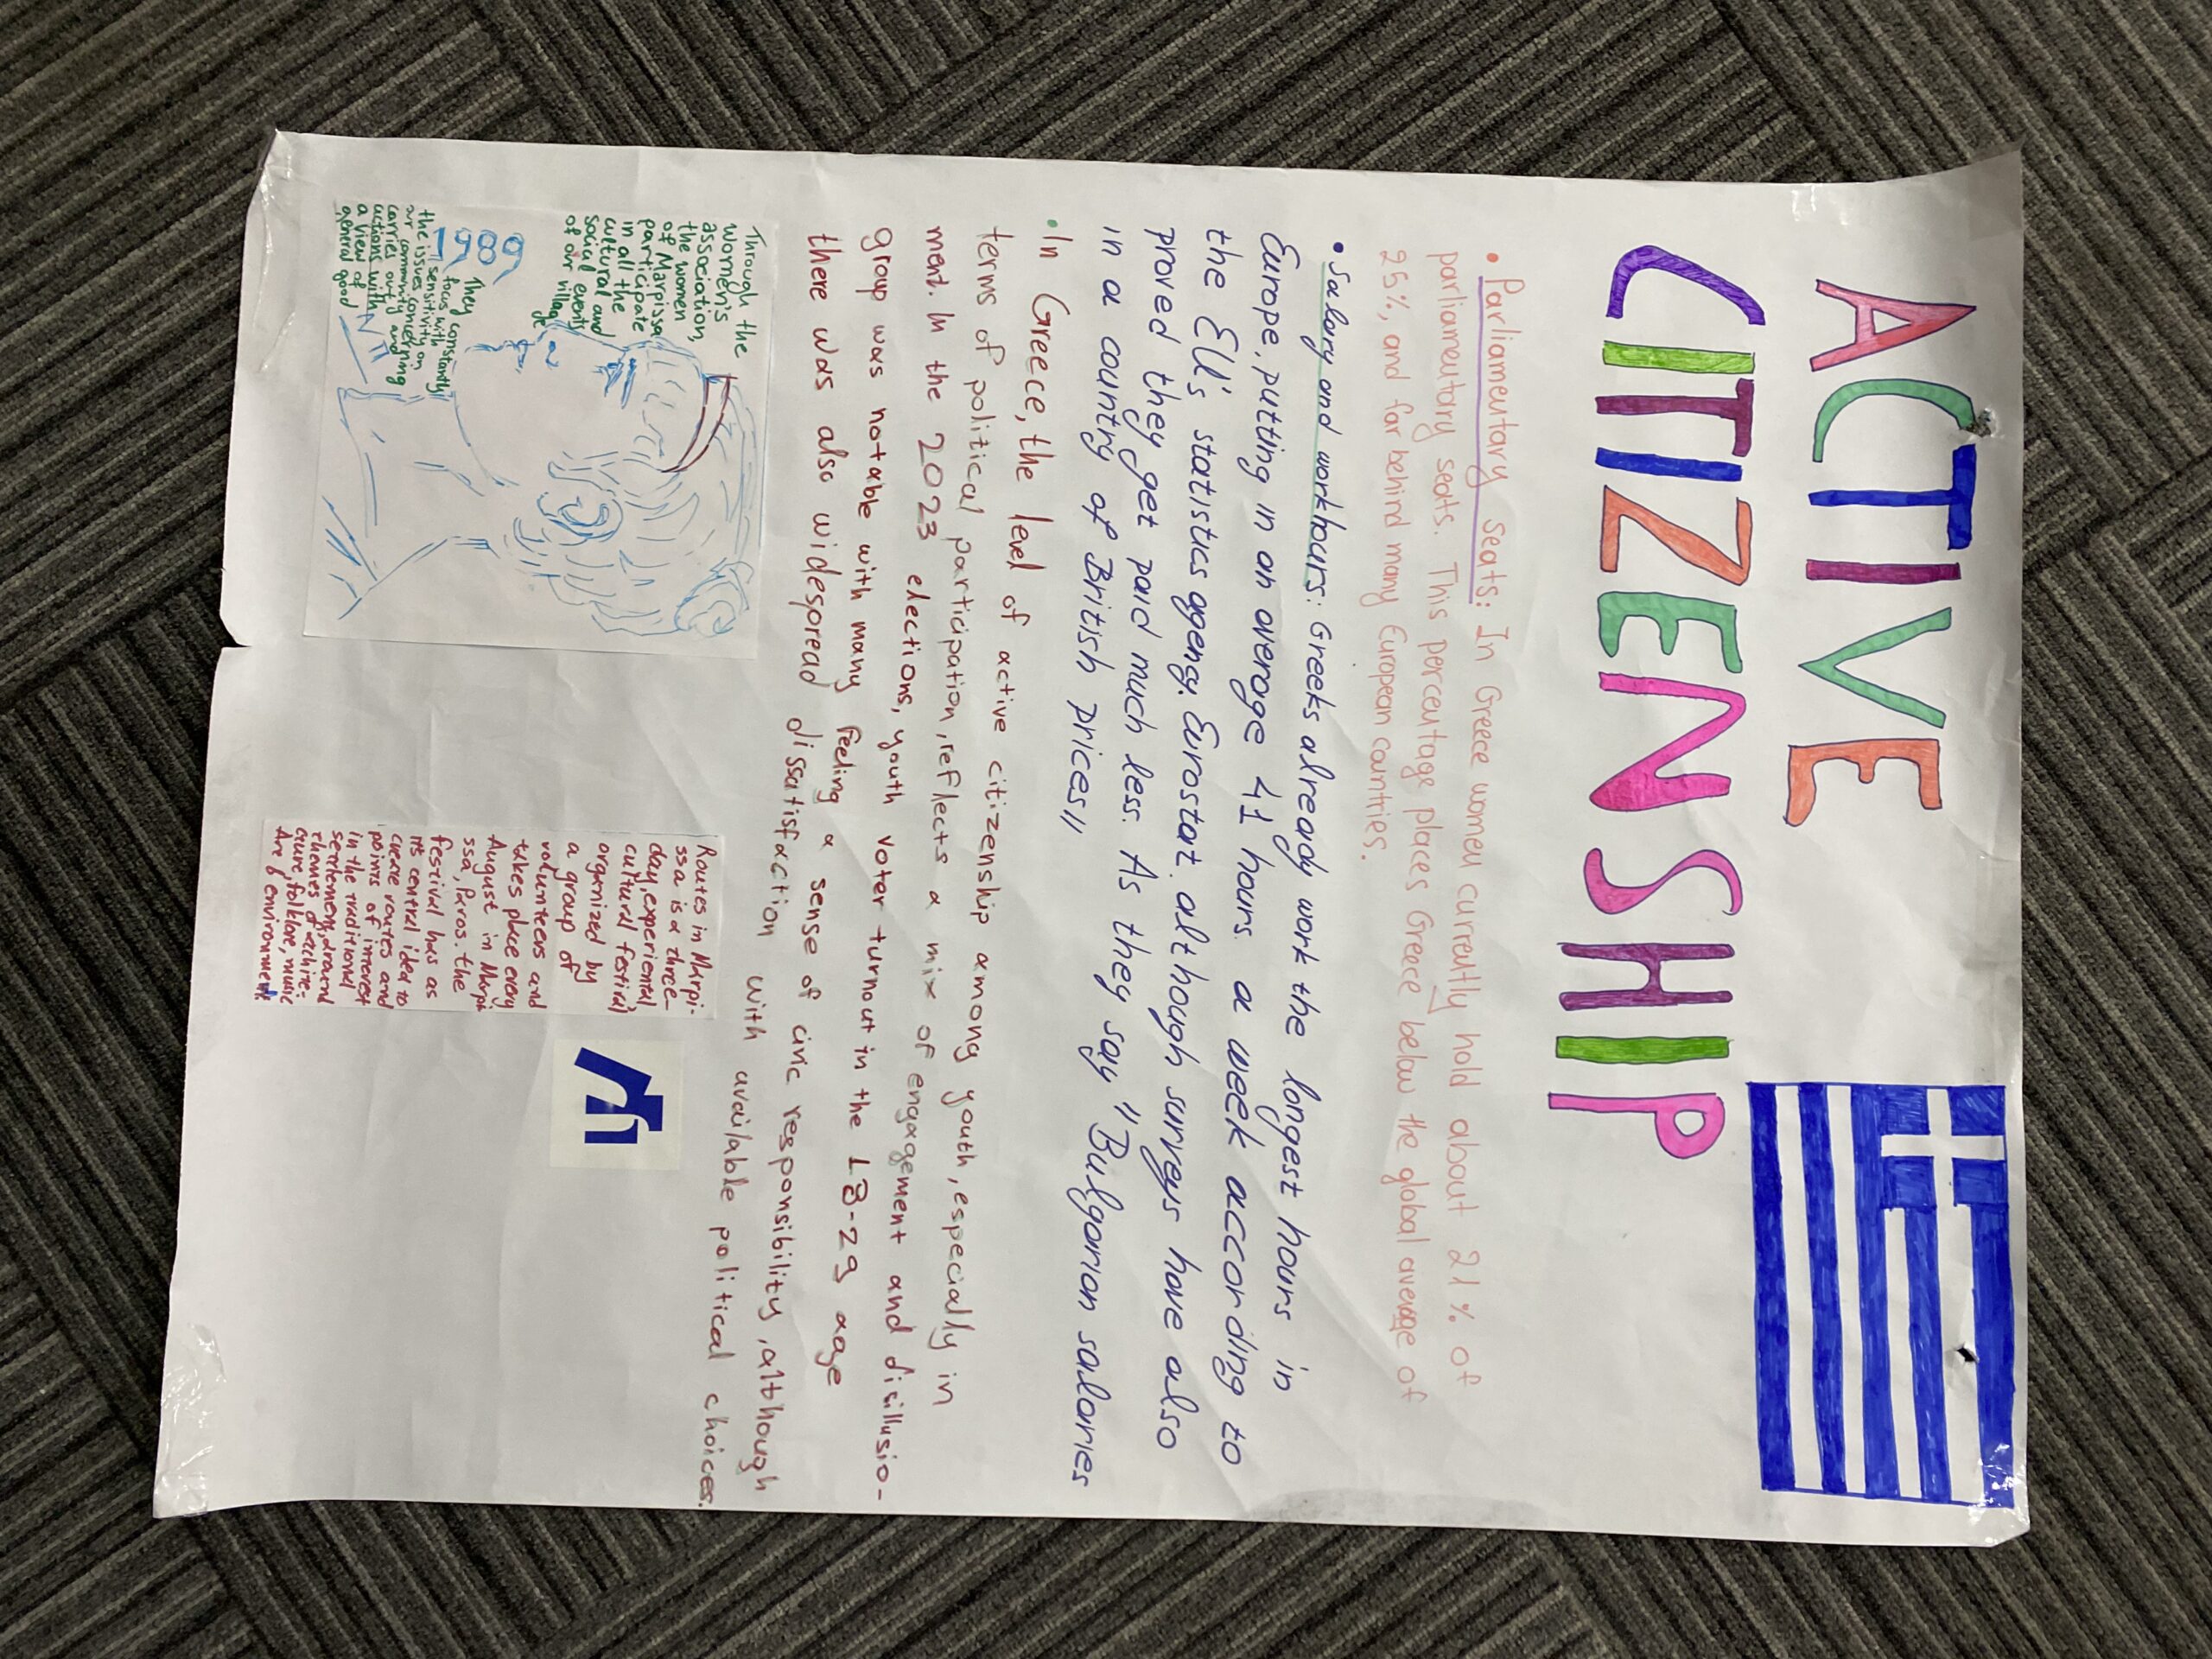 ACTIVE
CITIZENSHIP
• Parliamentary seats: In Greece women currently hold about 21% of
parliamentary seats. This percentage places Greece below the global average of
25%, and far behind many European countries.
• Salary and workhours: Greeks already work the longest hours in
Europe, putting in an average 41 hours a week according to
the EU's statistics agency, Eurostat. although surveys have also
proved they get paid much less. As they say "Bulgarian salaries
in a country of British prices"
• In Greece, the level of active citizenship among youth, especially in
terms of political participation, reflects a mix of engagement and disillusio-
ment. In the 2023 elections, youth voter turnout in the 18-29 age
group was notable with many feeling a sense of civic responsibility, although
there was also widespread dissatisfaction with available political choices.
Through the
women's
association,
the women
of Marpissa
participate
in all the
cultural and
social events
of our village
1989
They constantly
focus with
sensitivity on
the issues concerning
our community and
carries out
actions with
a view of
general good
Routes in Marpi-
ssa is a three-
day, experiential
cultural festival
organized by
a group of
volunteers and
takes place every
August in Marpi
ssa, Paros. the
festival has as
its central idea to
create routes and
points of interest
in the traditional
settlement, around
themes of archite-
cture, folklore, music
Are & environment